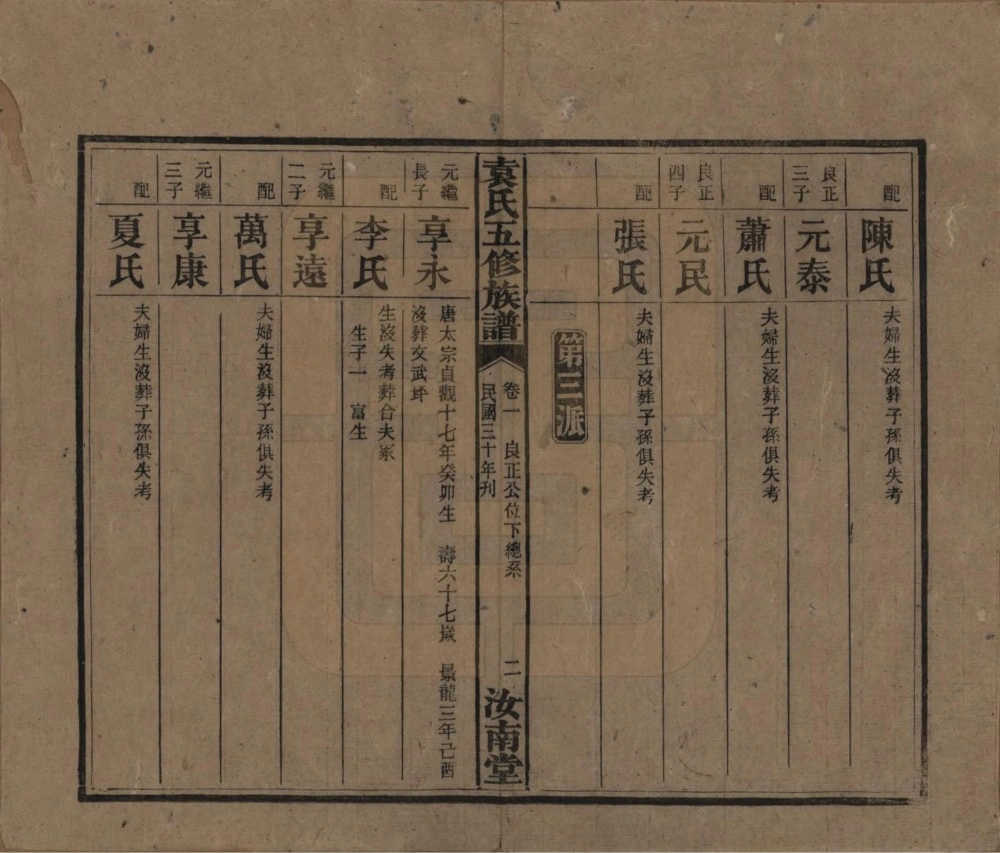 配 陳氏 夫婦生沒葬子孫俱失考
良正三子 元泰
配 蕭氏 夫婦生沒葬子孫俱失考
良正四子 元民
配 張氏 夫婦生沒葬子孫俱失考
第三派
袁氏五修族譜 卷一 良正公位下總系 民國三十年刊 二 汝南堂
元繼長子 享永 唐太宗貞觀十七年癸卯生 壽六十七歲 景龍三年己酉
沒葬文武坪
配 李氏 生沒失考葬台夫冢
生子一 富生
元繼二子 享遠
配 萬氏 夫婦生沒葬子孫俱失考
元繼三子 享康
配 夏氏 夫婦生沒葬子孫俱失考